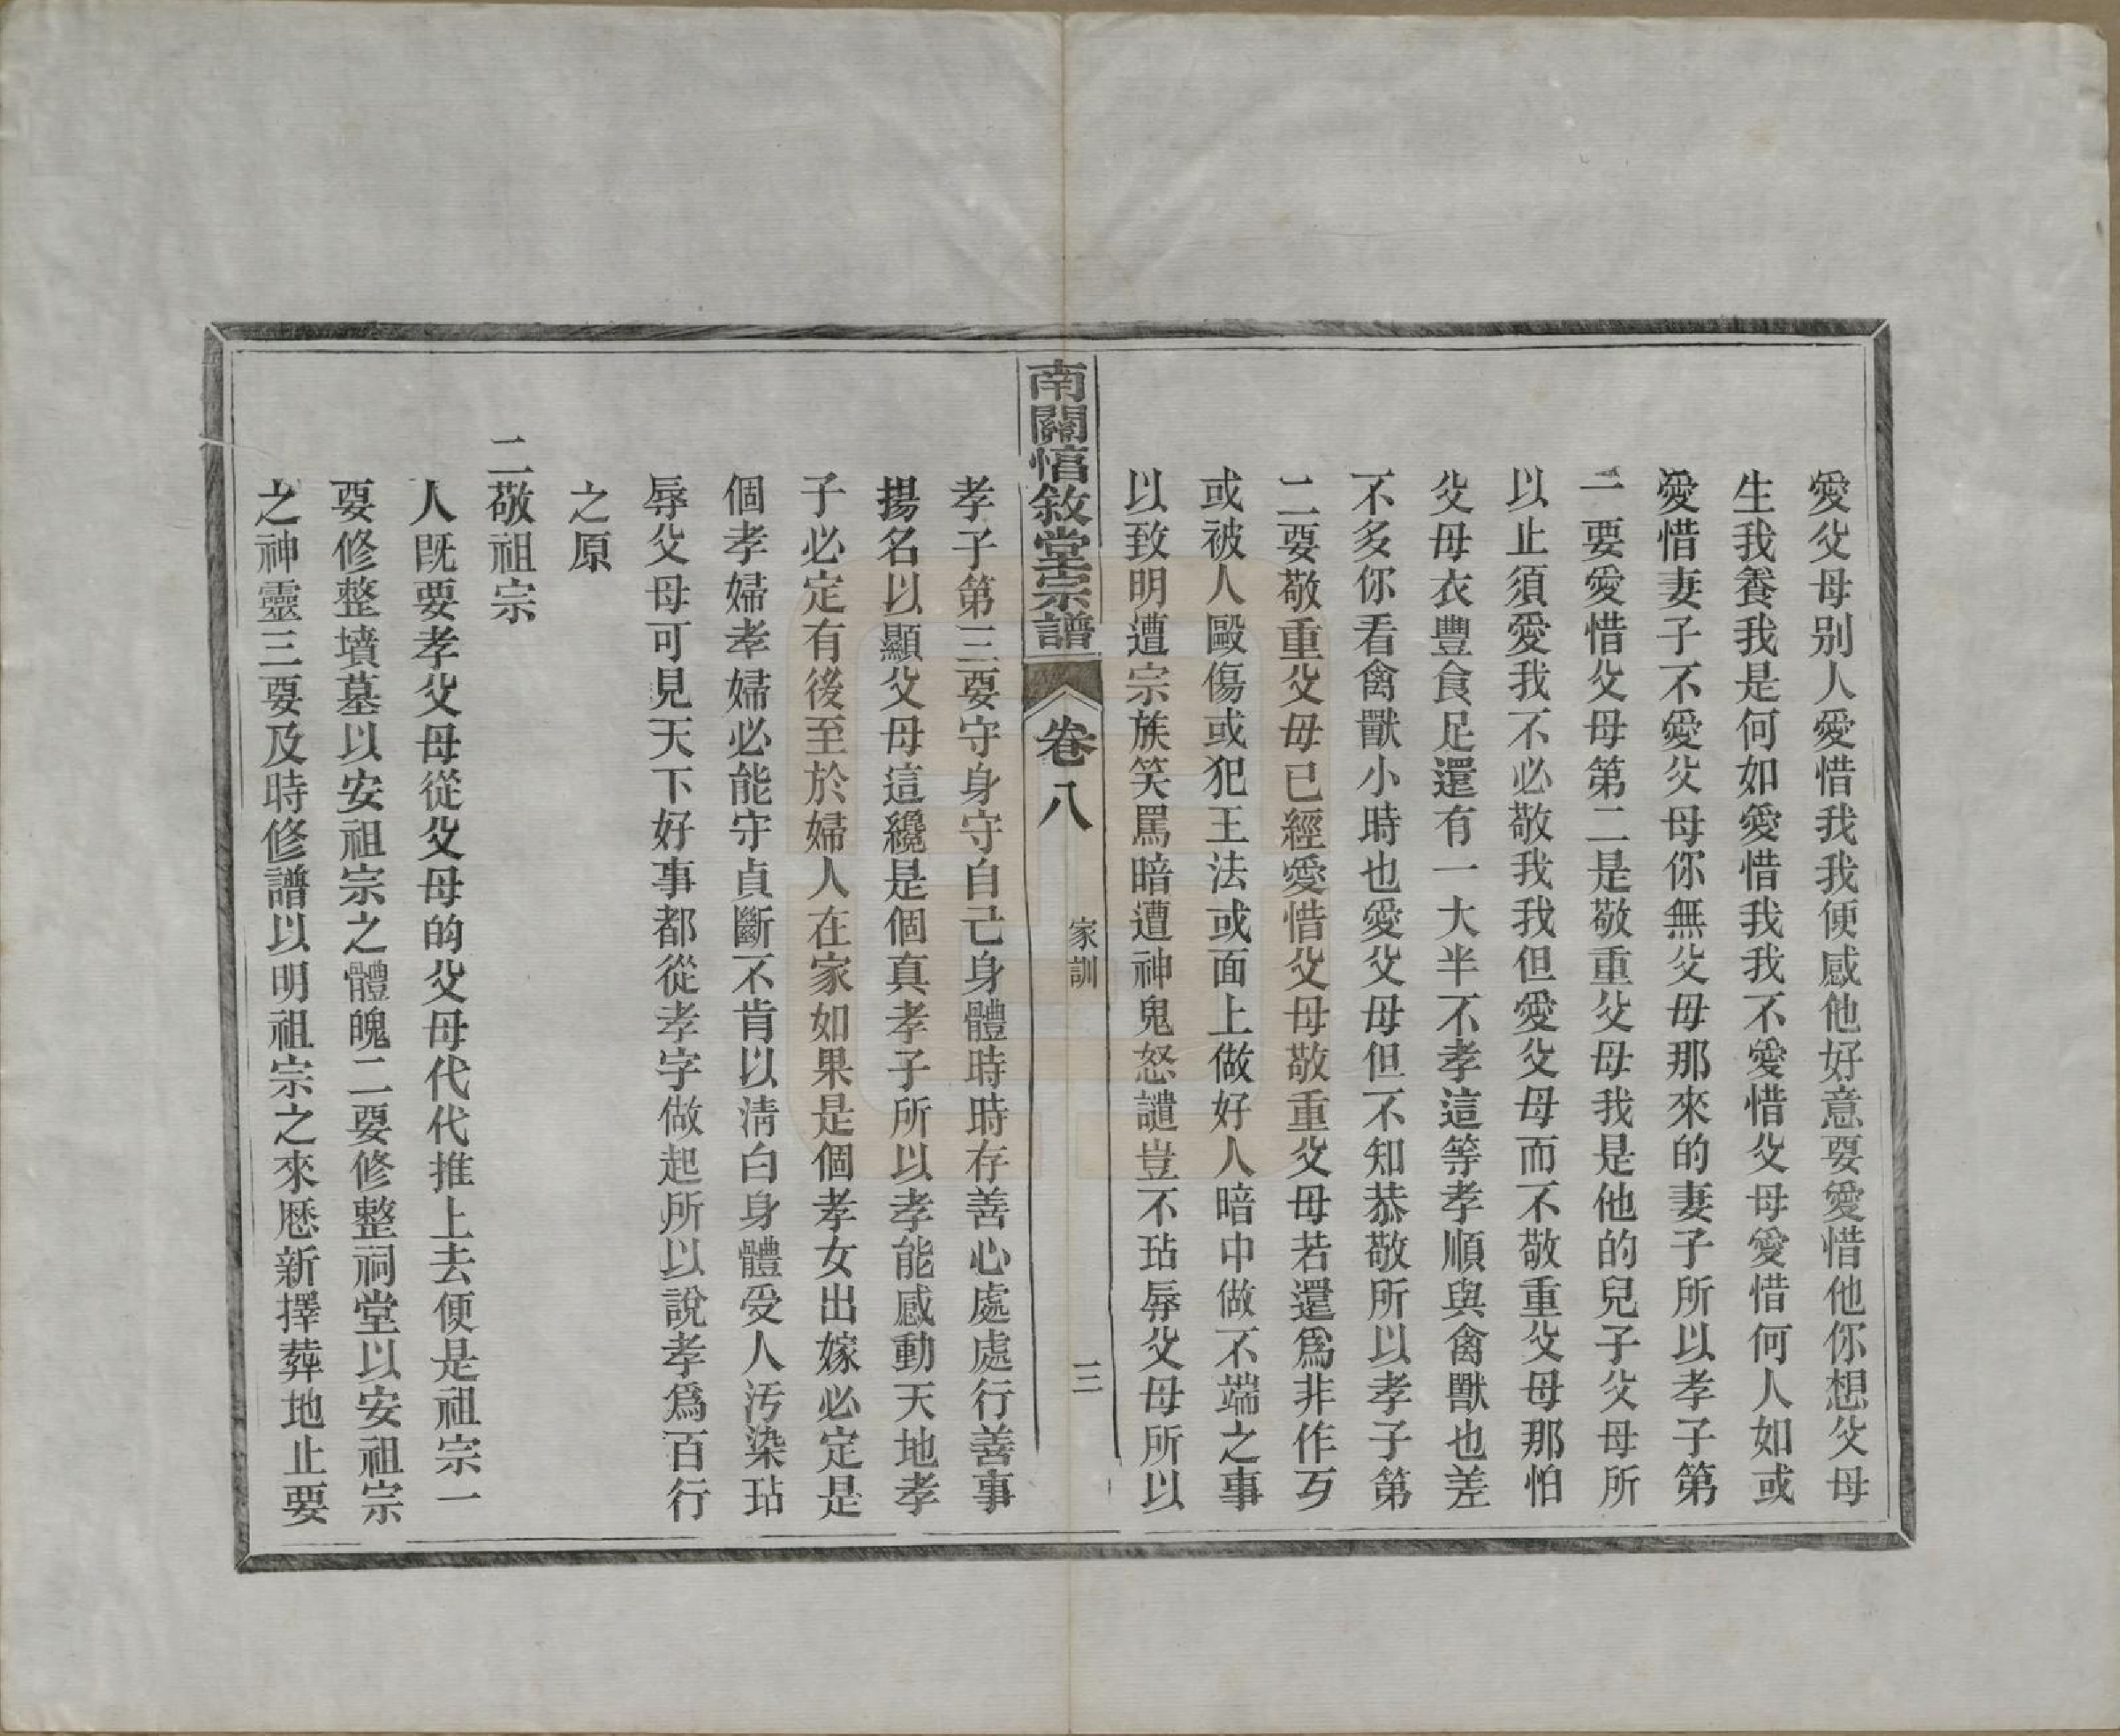 愛父母別人愛惜我我便感他好意要愛惜他你想父母
生我養我是何如愛惜我我不愛惜父母愛惜何人如或
愛惜妻子不愛父母你無父母那來的妻子所以孝子第
一要愛惜父母第二是敬重父母我是他的兒子父母所
以止須愛我不必敬我我但愛父母而不敬重父母那怕
父母衣豐食足還有一大半不孝這等孝順與禽獸也差
不多你看禽獸小時也愛父母但不知恭敬所以孝子第
二要敬重父母已經愛惜父母敬重父母若還爲非作歹
或被人毆傷或犯王法或面上做好人暗中做不端之事
以致明遭宗族笑罵暗遭神鬼怒譴豈不玷辱父母所以
南關惇敘堂宗譜
卷八
家訓
三
孝子第三要守身守自己身體時時存善心處處行善事
揚名以顯父母這纔是個真孝子所以孝能感動天地孝
子必定有後至於婦人在家如果是個孝女出嫁必定是
個孝婦孝婦必能守貞斷不肯以淸白身體受人汚染玷
辱父母可見天下好事都從孝字做起所以說孝爲百行
之原
二敬祖宗
人旣要孝父母從父母的父母代代推上去便是祖宗一
要修整墳墓以安祖宗之體魄二要修整祠堂以安祖宗
之神靈三要及時修譜以明祖宗之來歷新擇葬地止要